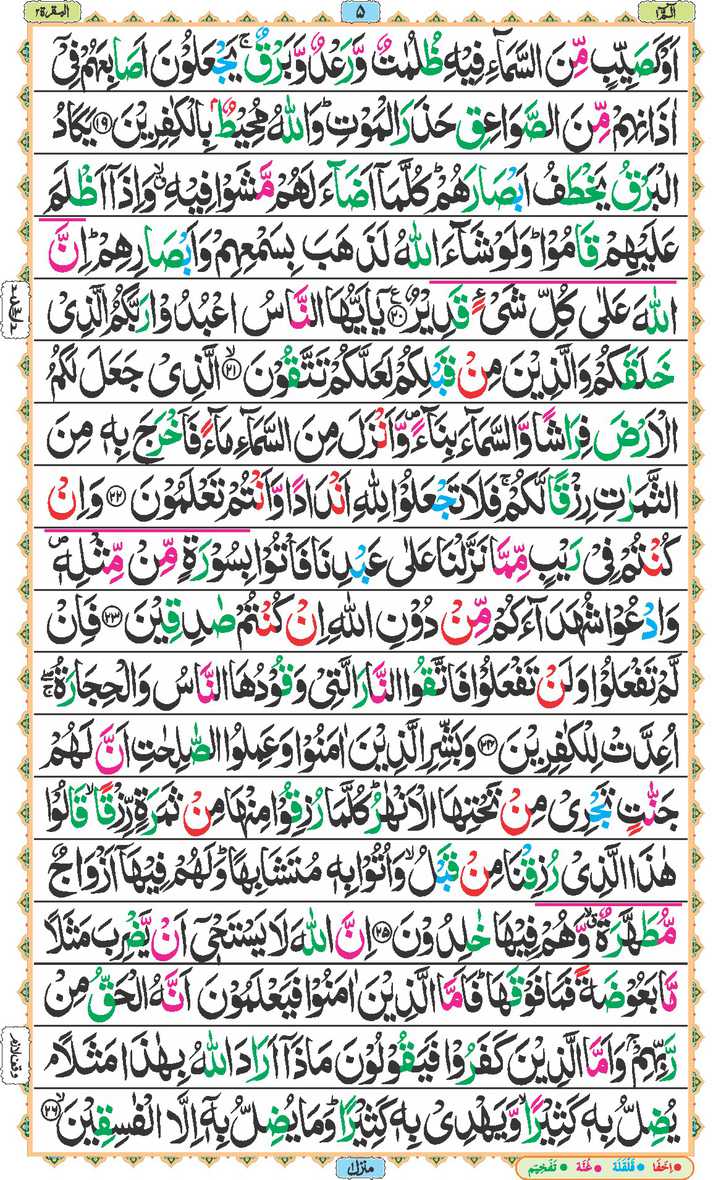 الٓمّٓ ١
٥
البقرة ٢
اَوْ كَصَيِّبٍ مِّنَ السَّمَآءِ فِيْهِ ظُلُمٰتٌ وَّرَعْدٌ وَّبَرْقٌ ۚ يَجْعَلُوْنَ اَصَابِعَهُمْ فِيْۤ
اٰذَانِهِمْ مِّنَ الصَّوَاعِقِ حَذَرَ الْمَوْتِ ؕ وَاللّٰهُ مُحِيْطٌۢ بِالْكٰفِرِيْنَ ۝۱۹ يَكَادُ
الْبَرْقُ يَخْطَفُ اَبْصَارَهُمْ ؕ كُلَّمَاۤ اَضَآءَ لَهُمْ مَّشَوْا فِيْهِ ۙۗ وَاِذَاۤ اَظْلَمَ
عَلَيْهِمْ قَامُوْا ؕ وَلَوْ شَآءَ اللّٰهُ لَذَهَبَ بِسَمْعِهِمْ وَاَبْصَارِهِمْ ؕ اِنَّ
اللّٰهَ عَلٰى كُلِّ شَىْءٍ قَدِيْرٌ ۝۲۰ ع يٰۤاَيُّهَا النَّاسُ اعْبُدُوْا رَبَّكُمُ الَّذِىْ
خَلَقَكُمْ وَالَّذِيْنَ مِنْ قَبْلِكُمْ لَعَلَّكُمْ تَتَّقُوْنَ ۙ‏۝۲۱ الَّذِىْ جَعَلَ لَكُمُ
الْاَرْضَ فِرَاشًا وَّالسَّمَآءَ بِنَآءً ۪ وَّاَنْزَلَ مِنَ السَّمَآءِ مَآءً فَاَخْرَجَ بِهٖ مِنَ
الثَّمَرٰتِ رِزْقًا لَّكُمْ ۚ فَلَا تَجْعَلُوْا لِلّٰهِ اَنْدَادًا وَّاَنْتُمْ تَعْلَمُوْنَ ۝۲۲ وَاِنْ
كُنْتُمْ فِىْ رَيْبٍ مِّمَّا نَزَّلْنَا عَلٰى عَبْدِنَا فَاْتُوْا بِسُوْرَةٍ مِّنْ مِّثْلِهٖ ۪
وَادْعُوْا شُهَدَآءَكُمْ مِّنْ دُوْنِ اللّٰهِ اِنْ كُنْتُمْ صٰدِقِيْنَ ۝۲۳ فَاِنْ
لَّمْ تَفْعَلُوْا وَلَنْ تَفْعَلُوْا فَاتَّقُوا النَّارَ الَّتِىْ وَقُوْدُهَا النَّاسُ وَالْحِجَارَةُ ۖۚ
اُعِدَّتْ لِلْكٰفِرِيْنَ ۝۲۴ وَبَشِّرِ الَّذِيْنَ اٰمَنُوْا وَعَمِلُوا الصّٰلِحٰتِ اَنَّ لَهُمْ
جَنّٰتٍ تَجْرِىْ مِنْ تَحْتِهَا الْاَنْهٰرُ ؕ كُلَّمَا رُزِقُوْا مِنْهَا مِنْ ثَمَرَةٍ رِّزْقًا ۙ قَالُوْا
هٰذَا الَّذِىْ رُزِقْنَا مِنْ قَبْلُ ۙ وَاُتُوْا بِهٖ مُتَشَابِهًا ؕ وَلَهُمْ فِيْهَاۤ اَزْوَاجٌ
مُّطَهَّرَةٌ ۙۗ وَّهُمْ فِيْهَا خٰلِدُوْنَ ۝۲۵ اِنَّ اللّٰهَ لَا يَسْتَحْىٖۤ اَنْ يَّضْرِبَ مَثَلًا
مَّا بَعُوْضَةً فَمَا فَوْقَهَا ؕ فَاَمَّا الَّذِيْنَ اٰمَنُوْا فَيَعْلَمُوْنَ اَنَّهُ الْحَقُّ مِنْ
رَّبِّهِمْ ۚ وَاَمَّا الَّذِيْنَ كَفَرُوْا فَيَقُوْلُوْنَ مَاذَاۤ اَرَادَ اللّٰهُ بِهٰذَا مَثَلًا ۘ
يُضِلُّ بِهٖ كَثِيْرًا ۙ وَّيَهْدِىْ بِهٖ كَثِيْرًا ؕ وَمَا يُضِلُّ بِهٖۤ اِلَّا الْفٰسِقِيْنَ ۙ‏۝۲۶
منزل ١
● اِخفَا ● قَلْقَلَة ● غُنَّة ● تَفْخِيْم